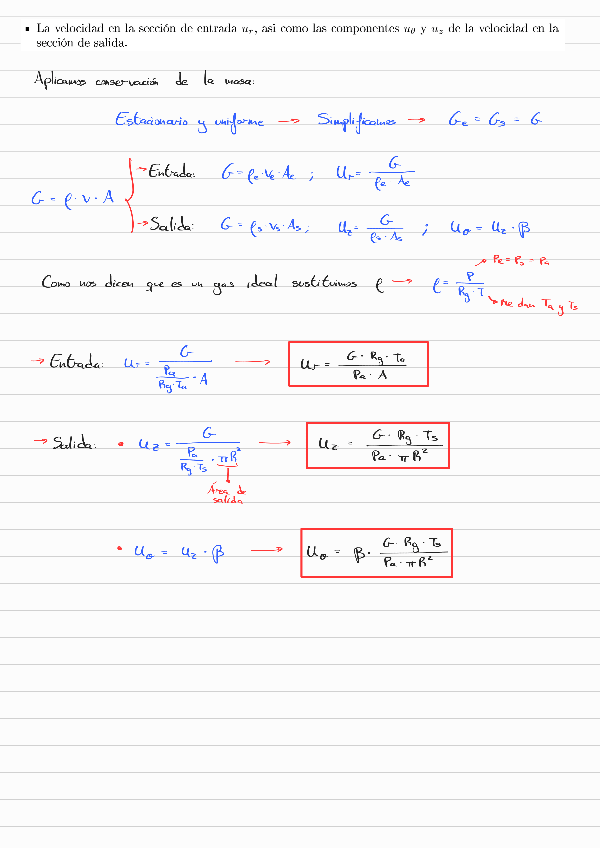 ▪ La velocidad en la sección de entrada u_r, asi como las componentes u_θ y u_z de la velocidad en la
sección de salida.
Aplicamos conservación de la masa:
Estacionario y uniforme → Simplificamos → G_e = G_s = G
G = ρ · v · A
→ Entrada: G = ρ_e · v_e · A_e ; U_r = G / (ρ_e A_e)
→ Salida: G = ρ_s v_s · A_s ; U_z = G / (ρ_s · A_s) ; U_θ = U_z · β
Como nos dicen que es un gas ideal sustituimos ρ → ρ = P / (R_g · T)
P_e = P_s = P_a
Me dan T_a y T_s
→ Entrada: U_r = G / ((P_a / (R_g · T_a)) · A) → U_r = (G · R_g · T_a) / (P_a · A)
→ Salida: • U_z = G / ((P_a / (R_g · T_s)) · πR²) → U_z = (G · R_g · T_s) / (P_a · πR²)
Área de
salida
• U_θ = U_z · β → U_θ = β · (G · R_g · T_s) / (P_a · πR²)